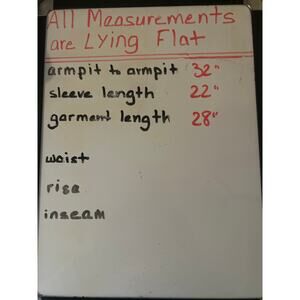 All Measurements
are Lying Flat
armpit to armpit 32"
sleeve length 22"
garment length 28"
waist
rise
inseam